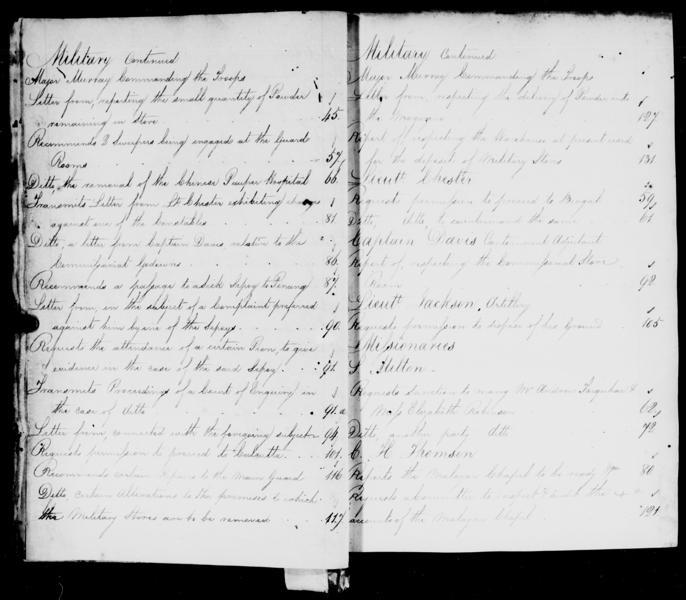 Military Continued
Major Murray Commanding the Troops
Letter from, reporting the small quantity of Powder
remaining in store 45.
Recommends 2 Sweepers being engaged at the Guard
Rooms 57.
Ditto, the removal of the Chinese Pauper Hospital 66.
Transmits Letter from Lt Chester exhibiting charge
against one of the Constables 81
Ditto, a letter from Captain Davis, relative to the
Commissariat Godowns 86.
Recommends a passage to a sick Sepoy to Penang 87.
Letter from, on the subject of a Complaint preferred
against him by one of the Sepoys 90.
Requests the attendance of a certain Peon, to give
evidence in the case of the said Sepoy 91.
Transmits Proceedings of a Court of Enquiry in
the case of ditto 91.a
Letter from, connected with the foregoing subject 94.
Requests permission to proceed to Calcutta 101.
Recommends certain repairs to the Main Guard 116
Ditto certain Alterations to the premises to which
the Military Stores are to be removed 117
Military Continued
Major Murray Commanding the Troops
Letter from, respecting the delivery of Powder into
the Magazine 127
Report of respecting the Warehouse at present used
for the deposit of Military Stores 131
Lieutt Chester
Request permission to proceed to Bengal 59
Ditto, ditto, to the same 61
Captain Davis Cantonment Adjutant
Report of, respecting the Commissariat Store
Room 92
Lieutt Jackson, Artillery
Requests permission to dispose of his Ground 105
Missionaries
S. Milton
Requests sanction to marry Mr Andrew Farquhar &
Miss Elizabeth Robinson 62
Ditto, another party ditto 72
C. H. Thomson
Reports the Malayan Chapel to be ready 80
Requests the
accounts of the Malayan Chapel 121